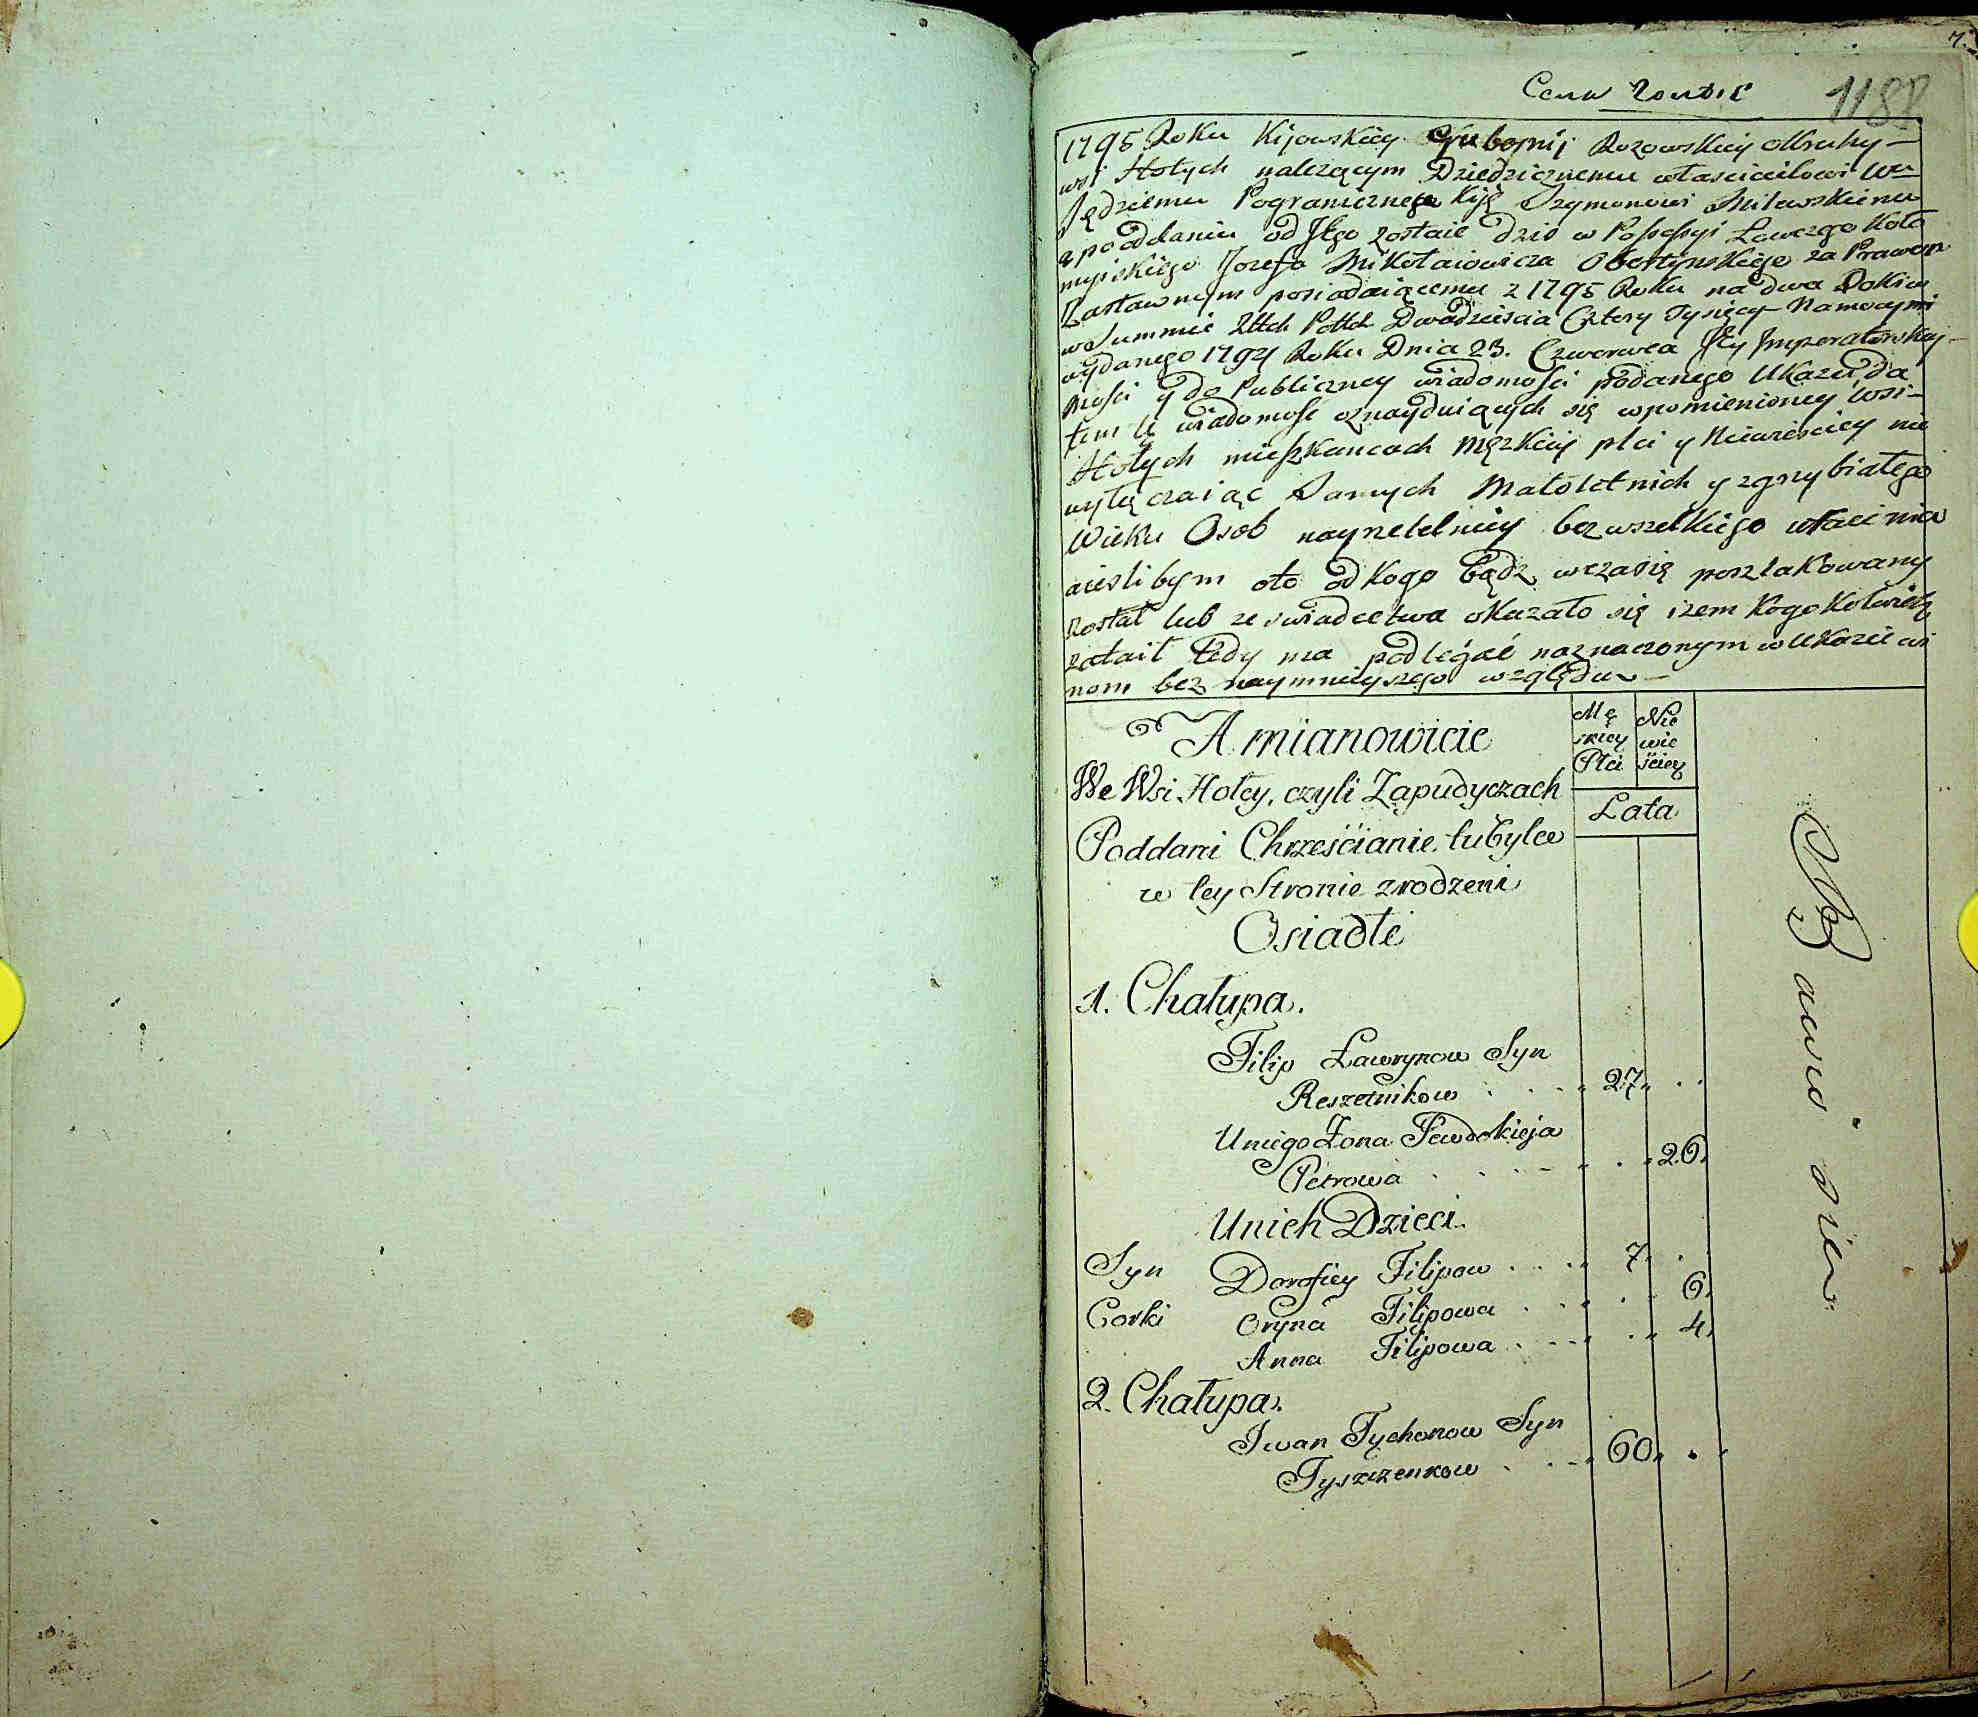 7.
1188
1795 Roku Kijowskiey Gubernij Rozowskiey okruhy
wsi Hołych należącym Dziedzicznemu własciciłowi
Sędziemu Pogranicznego Kijo Szymonowi Milewskiemu
z poddaniu od Jego zostaie dziś w Possessyi Łowczego Koło
Jozefa Mikołaiowicza Obertynskiego za Prawem
Zastawnym posiadaiącemu z 1795 Roku na dwa
w Summie Złtch Polch Dwadzieścia Cztery Tysięcy Namocy mi
wydanego 1794 Roku Dnia 23. Czerwca Jey Imperatorskiey
mości y do Publiczney wiadomości podanego Ukazu da
tem tę wiadomość oznayduiących się wpomienioney Wsi
Hołych mieszkancach Męzkiey płci y Niewieściey nie
wyłączaiąc Samych Małoletnich y zgrzybiałego
Wieku Osob nayrzetelniey bez wszelkiego utaienia
aieslibym oto od kogo bądz wczasię poszlakowany
został lub ze swiadectwa okazało się iżem kogokolwiek
zataił tedy ma podlegać naznaczonym w Ukazie wi
nom bez naymnieyszego względu
A mianowicie
Mę
skiey
Płci
Nie
wie
ściey
We Wsi Hołey, czyli Zapudyczach
Lata
Poddani Chrześcianie tubylce
w tey Stronie zrodzeni
Osiadłe
1. Chałupa.
Filip Ławrynow Syn
Reszetnikow 27
Uniego Żona Fewdokieja
Petrowa 26
Unich Dzieci
Syn Dorofiey Filipow 7
Corki Oryna Filipowa 6
Anna Filipowa 4
2. Chałupa.
Iwan Tychonow Syn
Tyszczenkow 60